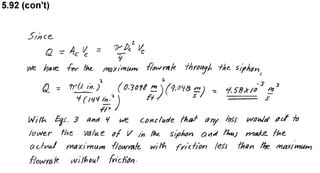 5.92 (con't)
Since
Q = A_c V_c = π D_c² V_c / 4
we have for the maximum flowrate through the siphon,
Q = π(1 in.)² / 4 (144 in.²/ft²) (0.3048 m/ft)² (9.048 m/s) = 4.58×10⁻³ m³/s
With Eqs. 3 and 4 we conclude that any loss would act to
lower the value of V in the siphon and thus make the
actual maximum flowrate with friction less than the maximum
flowrate without friction.